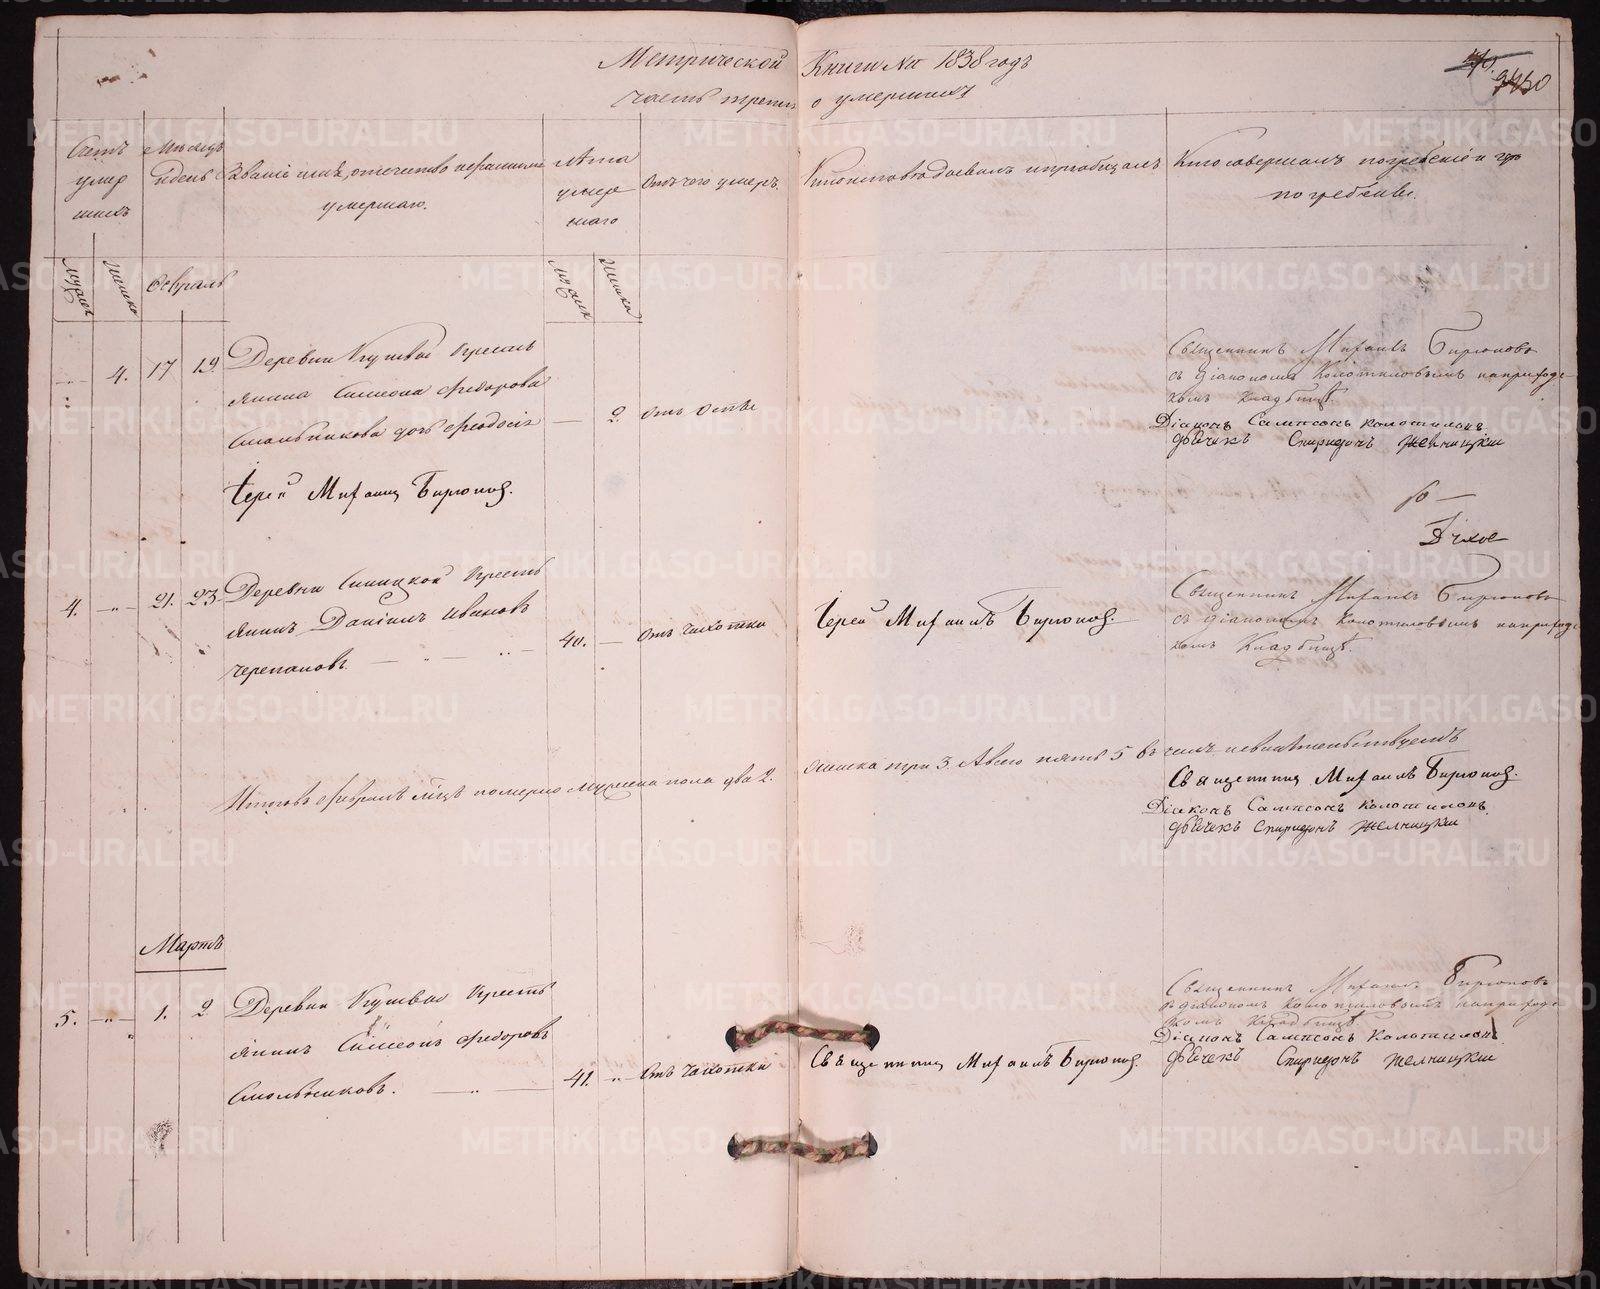 Метрической Книги На 1838 годъ
часть третья о умершихъ
450
Счетъ умер шихъ
Мѣсяцъ и день
Званіе имя, отечество и фамилія умершаго.
Лѣта умер шаго
Отъ чего умеръ.
Кто исповѣдовалъ и приобщалъ
Кто совершалъ погребеніе и гдѣ погребены.
мужеск
женска
Февраль
мужеск
женска
4. 17 19.
Деревни Кушвой Кресть
янина Симеона Федорова
Смольникова дочь Феодосія
— 2. отъ оспы
Священникъ Михаилъ Бирюковъ
съ діакономъ Колотиловымъ на приходс
комъ Кладбищѣ.
Діаконъ Сампсонъ Колотиловъ
Дьячекъ Спиридонъ Желницкій
Іерей Михаилъ Бирюковъ.
4. — 21. 23.
Деревни Синицкой Кресть
янинъ Даніилъ Ивановъ
Черепановъ.
40. — отъ чахотки
Іерей Михаилъ Бирюковъ.
Священникъ Михаилъ Бирюковъ
съ діакономъ Колотиловымъ на приходс
комъ Кладбищѣ.
Итого въ февралѣ мѣцѣ померло мужеска пола два 2. женска три 3. А всего пять 5 въ чемъ и свидѣтельствуемъ
Священникъ Михаилъ Бирюковъ.
Діаконъ Сампсонъ Колотиловъ.
Дьячекъ Спиридонъ Желницкій
Мартъ
5. — 1. 2
Деревни Кушвой Кресть
янинъ Симеонъ Федоровъ
Смольниковъ.
41. — Отъ чахотки
Священникъ Михаилъ Бирюковъ.
Священникъ Михаилъ Бирюковъ
съ діакономъ Колотиловымъ на приходс
комъ Кладбищѣ
Діаконъ Сампсонъ Колотиловъ
Дьячекъ Спиридонъ Желницкій
METRIKI.GASO-URAL.RU